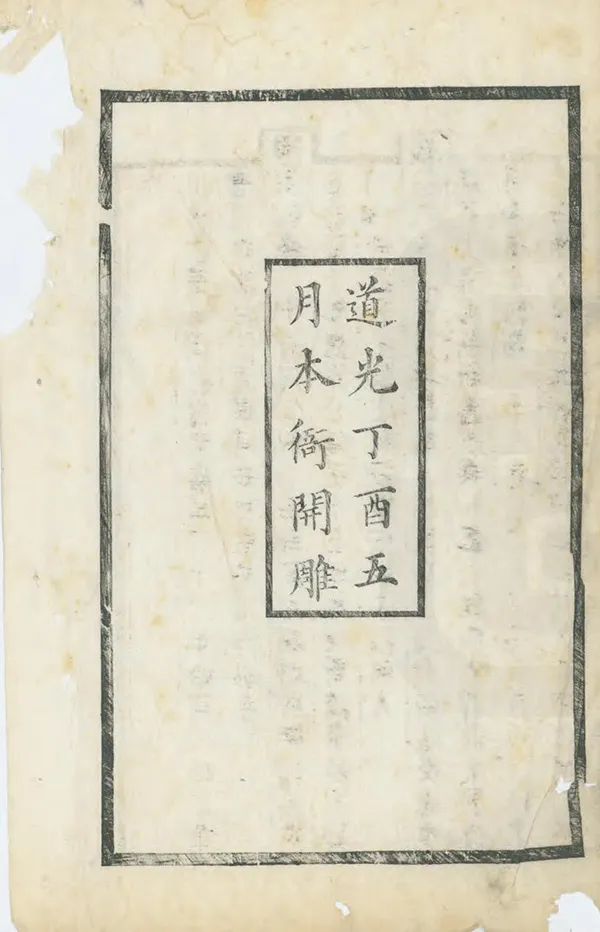 道光丁酉五
月本衙開雕